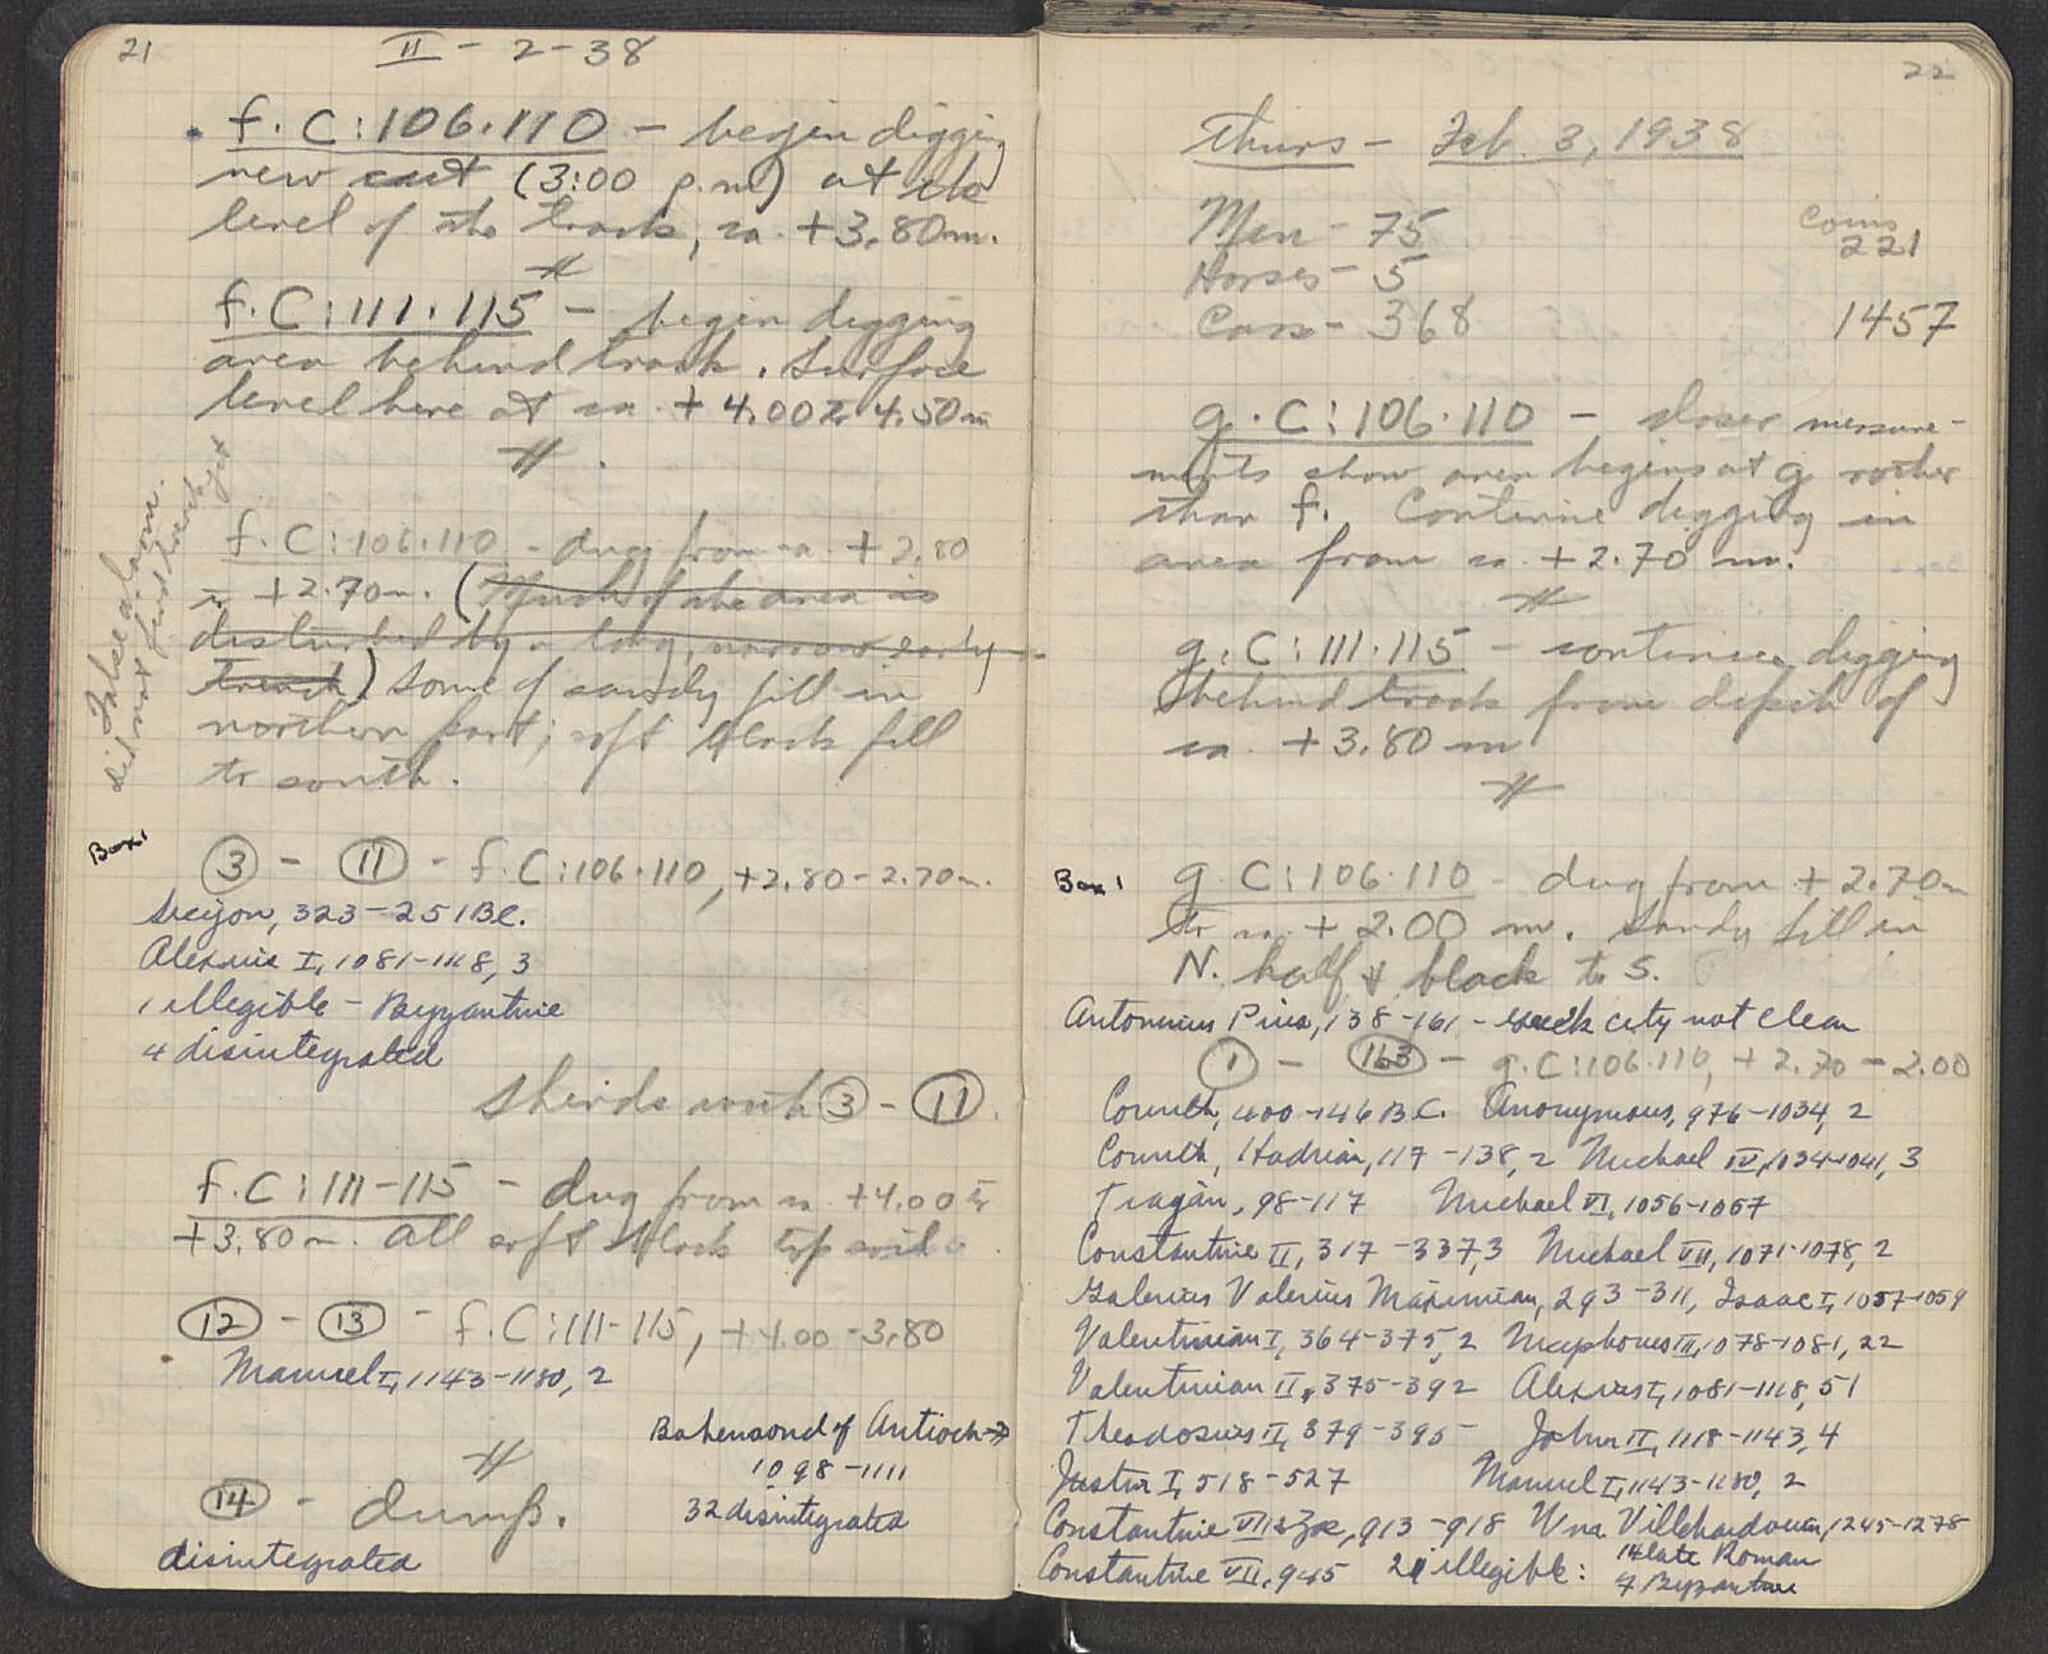 21
II - 2 - 38
f. C:106.110 - begin digging
new cut (3:00 p.m.) at the
level of the track, ca. +3.80m.
f. C:111.115 - begin digging
area behind track. Surface
level here at ca. +4.00 to 4.50m
False alarm.
did not find trench yet
f. C:106.110 - dug from ca. +2.80
to +2.70m. (Much of the area is
disturbed by a long, narrow early
trench) Some of sandy fill in
northern part; soft black fill
to south.
Box 1
(3) - (11) - f. C:106.110, +2.80-2.70m.
Sicyon, 323-251 BC.
Alexius I, 1081-1118, 3
1 illegible - Byzantine
4 disintegrated
Sherds with (3) - (11).
f. C:111-115 - dug from ca. +4.00 to
+3.80m. All soft black top soil.
(12) - (13) - f. C:111-115, +4.00-3.80
Manuel I, 1143-1180, 2
(14) - dump.
disintegrated
Bohemond of Antioch→
1098-1111
32 disintegrated
22
Thurs - Feb. 3, 1938
Men - 75
Coins
221
Horses - 5
Cars - 368
1457
g. C:106.110 - closer measure-
ments show area begins at g rather
than f. Continue digging in
area from ca. +2.70 m.
g. C:111.115 - continue digging
behind track from depth of
ca. +3.80 m
Box 1
g. C:106.110 - dug from +2.70m
to ca. +2.00 m. Sandy fill in
N. half & black to S.
Antoninus Pius, 138-161 - Greek city not clear
(1) - (163) - g. C:106.110, +2.70-2.00
Corinth, 400-146 B.C. Anonymous, 976-1034, 2
Corinth, Hadrian, 117-138, 2 Michael IV, 1034-1041, 3
Trajan, 98-117 Michael VI, 1056-1057
Constantine II, 317-337, 3 Michael VII, 1071-1078, 2
Galerius Valerius Maximian, 293-311, Isaac I, 1057-1059
Valentinian I, 364-375, 2 Nicephorus III, 1078-1081, 22
Valentinian II, 375-392 Alexius I, 1081-1118, 51
Theodosius II, 379-395 John II, 1118-1143, 4
Justin I, 518-527 Manuel I, 1143-1180, 2
Constantine VII & Zoe, 913-918 Wm. Villehardouin, 1245-1278
Constantine VII, 945 21 illegible: 14 late Roman
7 Byzantine